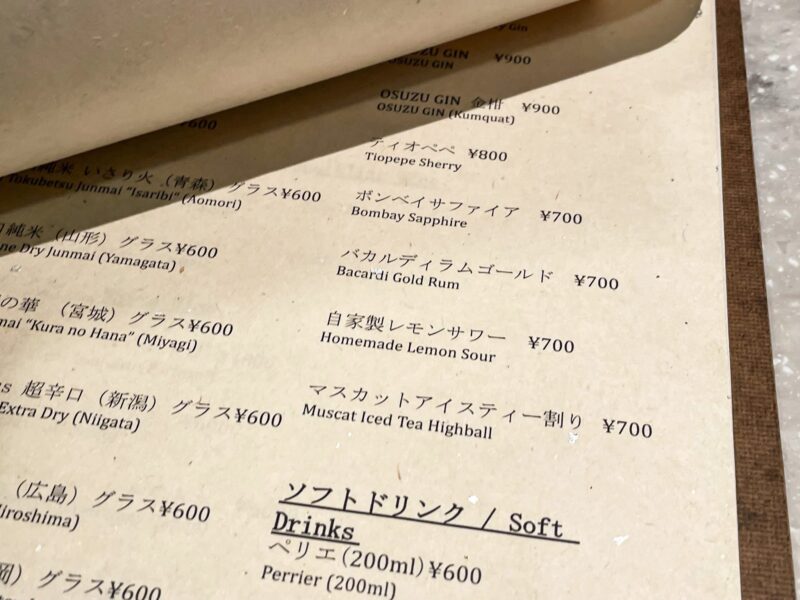 ¥600
純米 いさり火 (青森) グラス¥600
Tokubetsu Junmai "Isaribi" (Aomori)
純米 (山形) グラス¥600
Dry Junmai (Yamagata)
の華 (宮城) グラス¥600
"Kura no Hana" (Miyagi)
超辛口 (新潟) グラス¥600
Extra Dry (Niigata)
(広島) グラス¥600
グラス¥600
Gin
OSUZU GIN ¥900
OSUZU GIN
OSUZU GIN 金柑 ¥900
OSUZU GIN (Kumquat)
ティオペペ ¥800
Tiopepe Sherry
ボンベイサファイア ¥700
Bombay Sapphire
バカルディラムゴールド ¥700
Bacardi Gold Rum
自家製レモンサワー ¥700
Homemade Lemon Sour
マスカットアイスティー割り ¥700
Muscat Iced Tea Highball
ソフトドリンク / Soft
Drinks
ペリエ(200ml)¥600
Perrier (200ml)